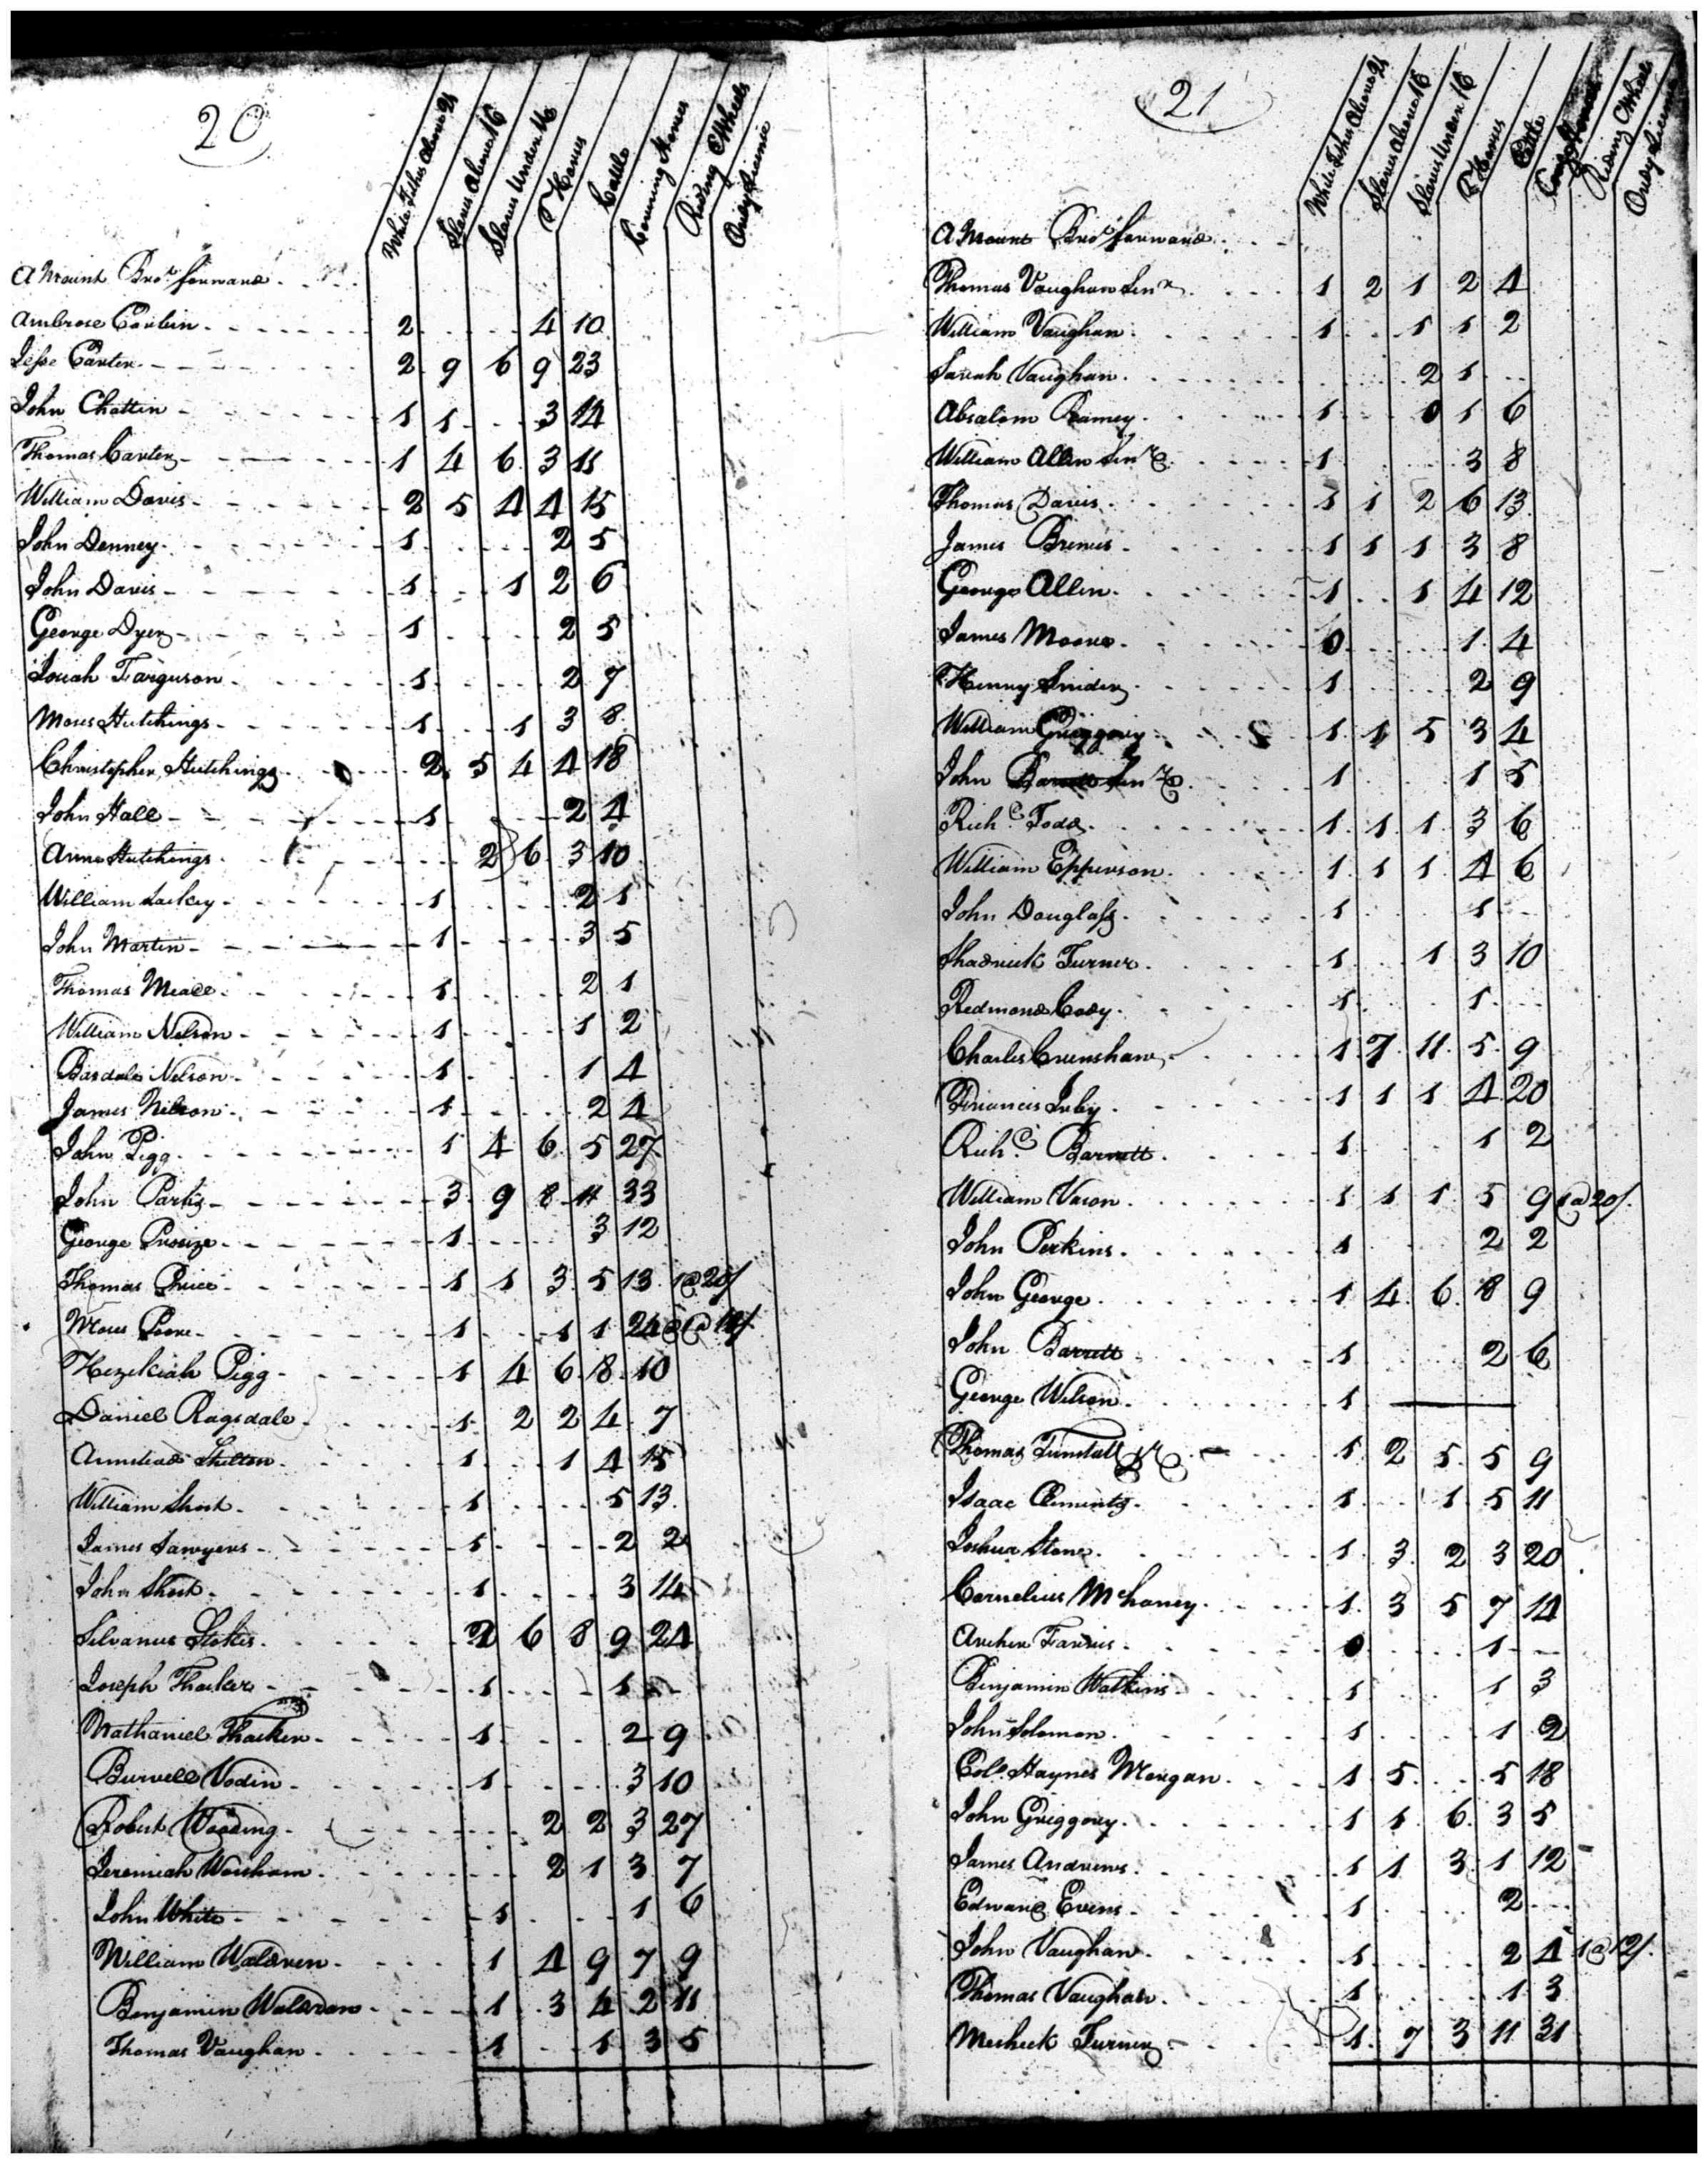 20
White Tithes Above 21 Slaves Above 16 Slaves Under 16 Horses Cattle Covering Horses Riding Wheels Ordy License
Amount Bro.t forward
Ambrose 2 4 10
Jesse Carter 2 9 6 9 23
John Chattin 1 1 3 14
Thomas Carter 1 4 6 3 11
William Davis 2 5 4 4 15
John Denney 1 2 5
John Davis 1 1 2 6
George Dyer 1 2 5
Josiah Farguson 1 2 7
Moses Hutchings 1 1 3 8
Christopher Hutchings 2 5 4 4 18
John Hall 1 2 4
Anne Hutchings 2 6 3 10
William Lackey 1 2 1
John Martin 1 3 5
Thomas Meade 1 2 1
William Nelson 1 1 2
Basdale Nelson 1 1 4
James Nelson 1 2 4
John Pigg 1 4 6 5 27
John Parks 3 9 8 11 33
George Prosize 1 3 12
Thomas Price 1 1 3 5 13 1@20/
Moses 1 1 1
Hezekiah Pigg 1 4 6 8 10
Daniel Ragsdale 1 2 2 4 7
Armstead Shelton 1 1 4 15
William Short 1 5 13
James Sawyers 1 2 2
John Short 1 3 14
Silvanus Stokes 2 6 8 9 24
Joseph Thacker 1 1
Nathaniel Thacker 1 2 9
Burwell Vodin 1 3 10
Robert Wooding 2 2 3 27
Jeremiah Worsham 2 1 3 7
John White 1 1 6
William Waldren 1 4 9 7 9
Benjamin Waldron 1 3 4 2 11
Thomas Vaughan 1 1 3 5
21
White Tithes Above 21 Slaves Above 16 Slaves Under 16 Horses Cattle Covg Horses Riding Wheels Ordy License
Amount Bro.t forward
Thomas Vaughan Senr 1 2 1 2 4
William Vaughan 1 1 1 2
Sarah Vaughan 2 1
Absalom Ramey 1 0 1 6
William Allen Senr 1 3 8
Thomas Davis 1 1 2 6 13
James 1 1 1 3 8
George Allin 1 1 4 12
James Moore 0 1 4
Henry Snider 1 2 9
William Griggory 1 1 5 3 4
John Barrett Senr 1 1 5
Richd Todd 1 1 1 3 6
William Epperson 1 1 1 4 6
John Douglass 1 1
Shadrick Turner 1 1 3 10
Redmond Cody 1 1
Charles Crenshaw 1 7 11 5 9
Francis Irby 1 1 1 4 20
Richd Barrett 1 1 2
William Vason 1 1 1 5 9 1@20/
John Perkins 1 2 2
John George 1 4 6 8 9
John Barrett 1 2 6
George Wilson 1
Thomas Tunstall Jr 1 2 5 5 9
Isaac Clements 1 1 5 11
Joshua Stone 1 3 2 3 20
Cornelius McHaney 1 3 5 7 14
Archer Farris 0 1
Binjamin Watkins 1 1 3
John Solomon 1 1 2
Colo Haynes Morgan 1 5 5 18
John Griggory 1 1 6 3 5
James Andrews 1 1 3 1 12
Edward Evens 1 2
John Vaughan 1 2 4 1@12/
Thomas Vaughan 1 1 3
Mesheck Turner 1 7 3 11 31